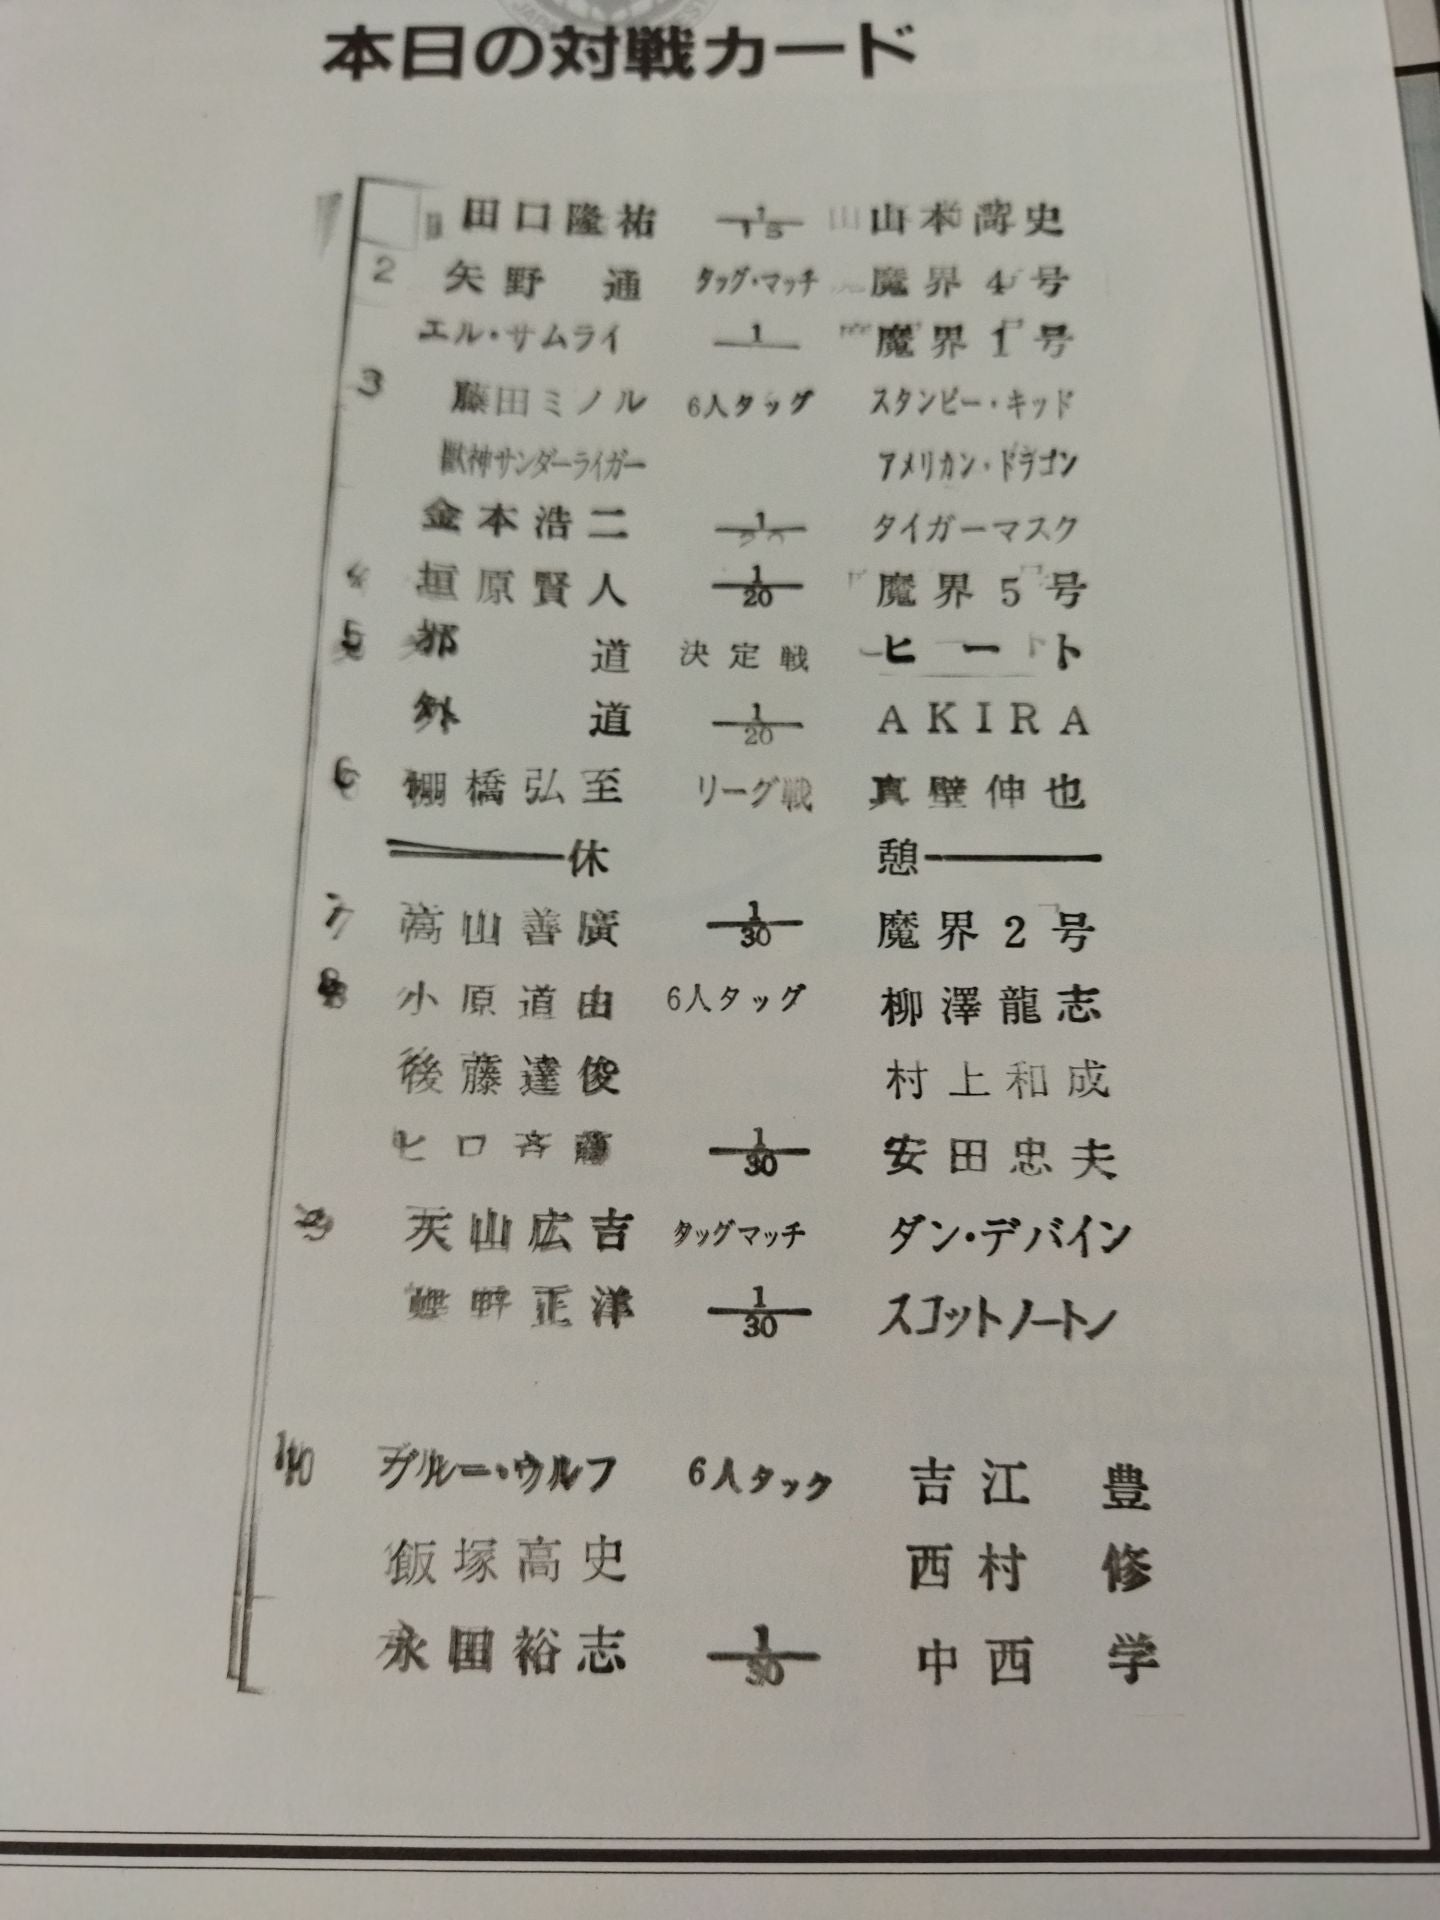 本日の対戦カード
田口隆祐 1/15 山本尚史
2 矢野 通 タッグ・マッチ 魔界4号
エル・サムライ 1 魔界1号
3 藤田ミノル 6人タッグ スタンピー・キッド
獣神サンダーライガー アメリカン・ドラゴン
金本浩二 1/20 タイガーマスク
4 垣原賢人 1/20 魔界5号
5 邪道 決定戦 ヒート
外道 1/20 AKIRA
6 棚橋弘至 リーグ戦 真壁伸也
休憩
7 高山善廣 1/30 魔界2号
8 小原道由 6人タッグ 柳澤龍志
後藤達俊 村上和成
ヒロ斉藤 1/30 安田忠夫
9 天山広吉 タッグマッチ ダン・デバイン
蝶野正洋 1/30 スコットノートン
10 ブルー・ウルフ 6人タック 吉江 豊
飯塚高史 西村 修
永田裕志 1/30 中西 学